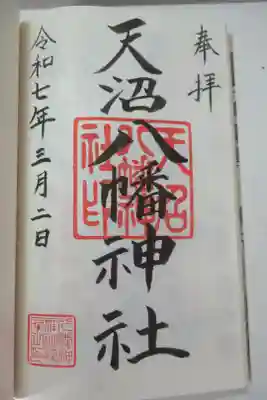 奉拝
天沼八幡神社
令和七年三月二日
天沼八幡神社印